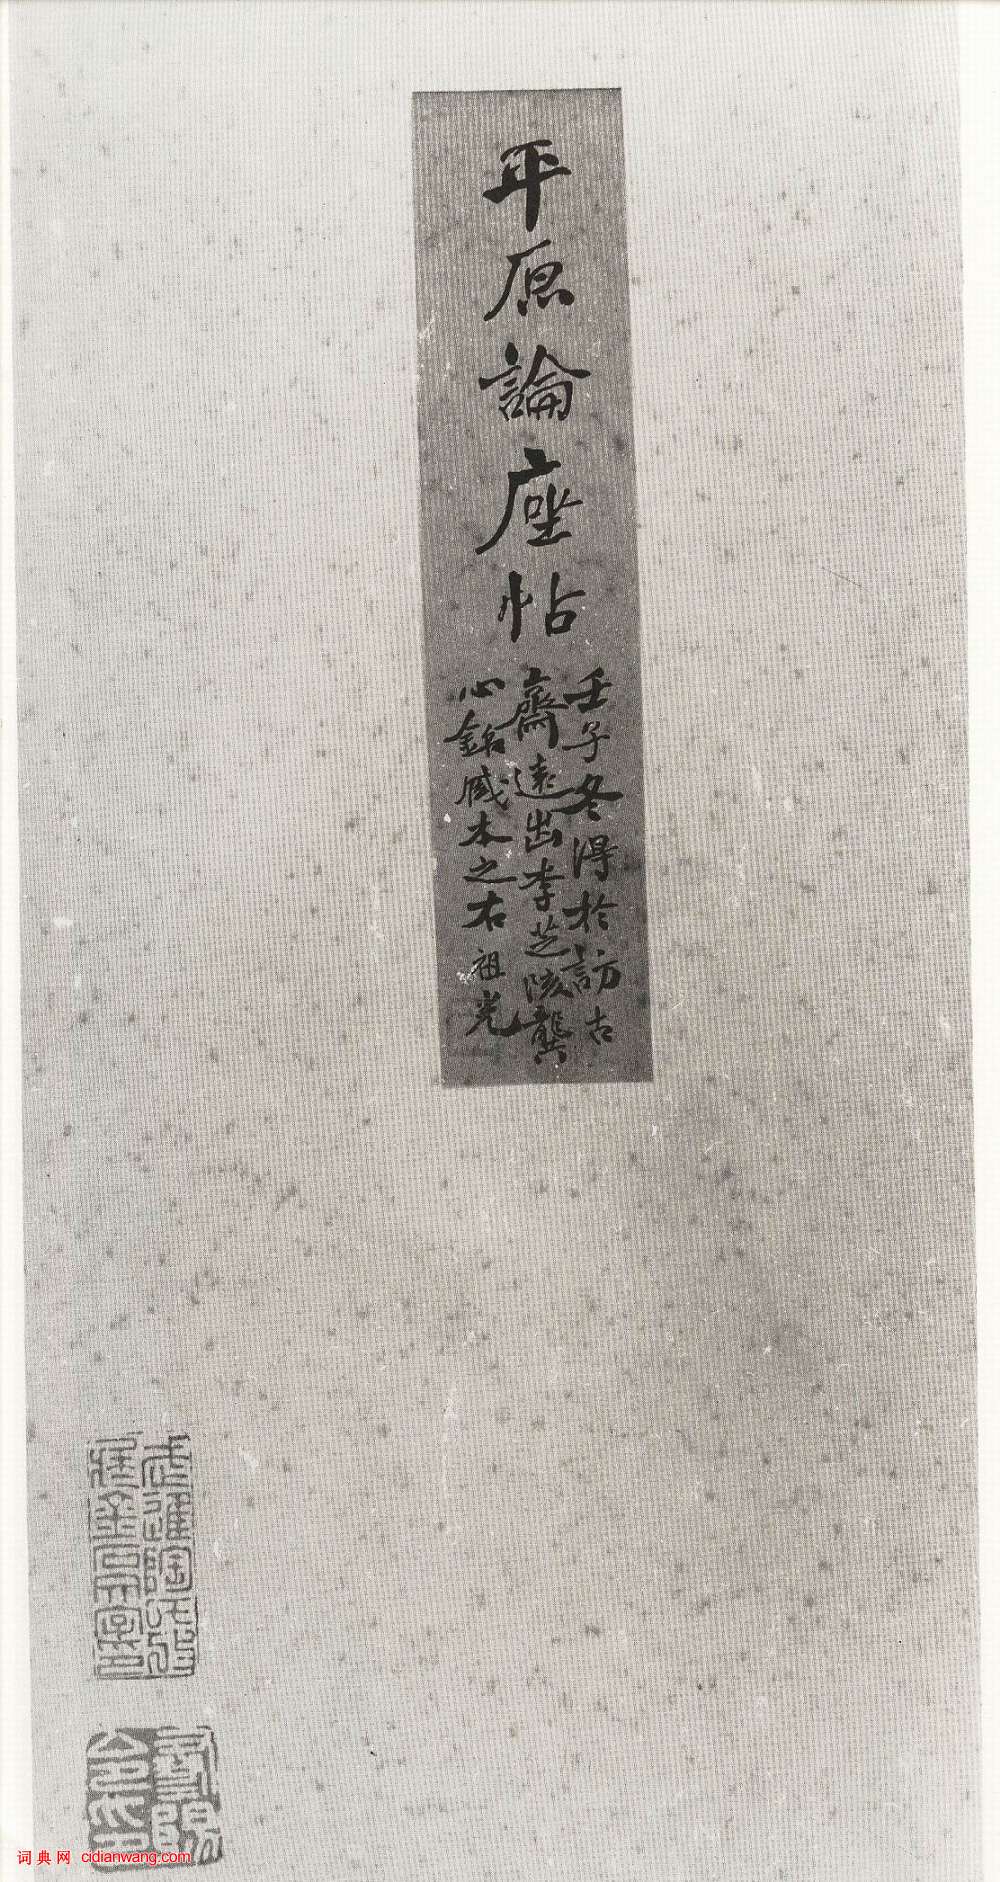 平原論座帖
壬子冬得於訪古
齋遠出李芝陔龔
心銘臧本之右祖光
词典网 cidianwang.com